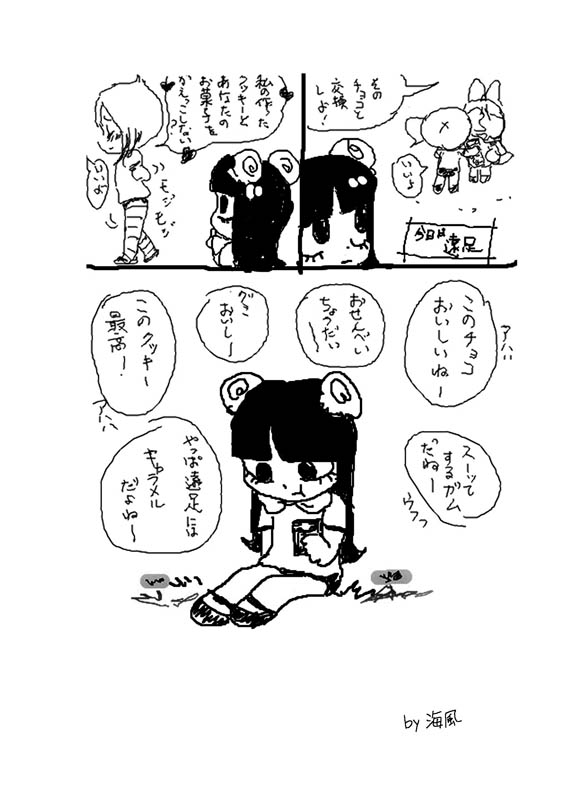 その
チョコと
交換
しよ!
いいよ
今日は
遠足
私の作った
クッキーと
あなたの
お菓子を
かえっこしない
?
モジ
モジ
いいよ
このチョコ
おいしいねー
アハハ
おせんべい
ちょうだい
グミ
おいしー
このクッキー
最高ー!
アハハ
スーッて
するガム
だねー
ウフフ
やっぱ遠足には
キャラメル
だよねー
by 海風